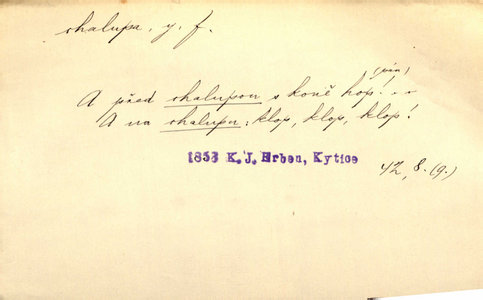 chalupa, y, f.
(pán)
A před chalupou s koně hop! ..
A na chalupu: klop, klop, klop!
1853 K. J. Erben, Kytice
42, 8. (9.)